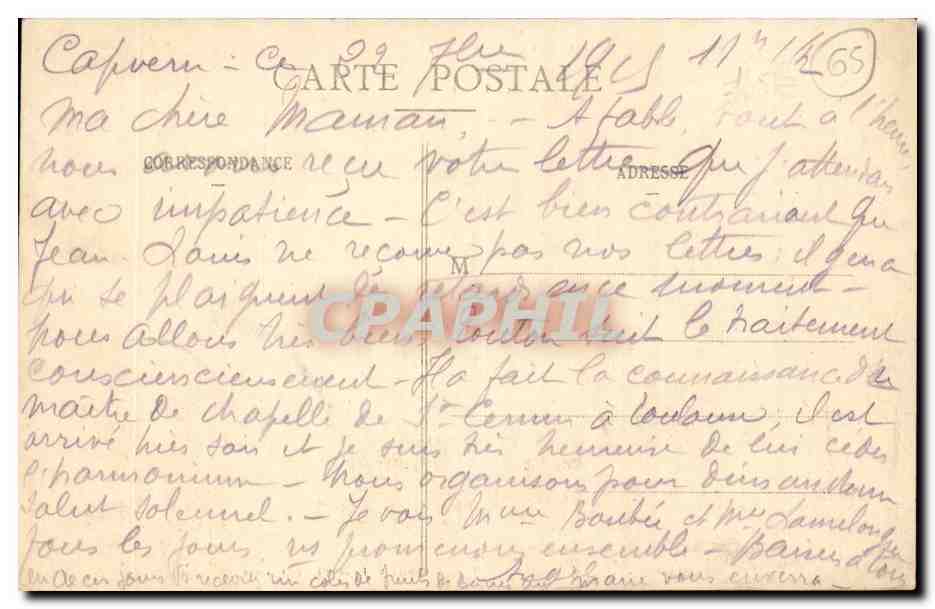 Capvern - Ce 22 7bre 1915 11h 1/2
65
CARTE POSTALE
ma chère Maman, - A table, tout à l'heure,
CORRESPONDANCE
ADRESSE
nous avons reçu votre lettre que j'attendais
avec impatience - C'est bien contrariant que
Jean-Louis ne reçoive pas vos lettres ; il y en a
M
qui se plaignent de retards en ce moment -
CPAPHIL
nous allons très bien, suit le traitement
consciencieusement - Il a fait la connaissance du
maître de chapelle de St Cernin à Toulouse, il est
arrivé hier soir et je suis très heureuse de lui céder
l'harmonium - Nous organisons pour dimanche un
salut solennel. - Je vois Mme Boubée et Mme
tous les jours ns promenons ensemble - Baisers à tous
un de ces jours recevoir un colis de fruits de vous enverra -